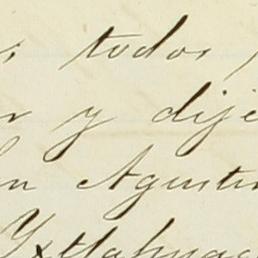 todos
y dije
n Agustin
Yxtlahuac